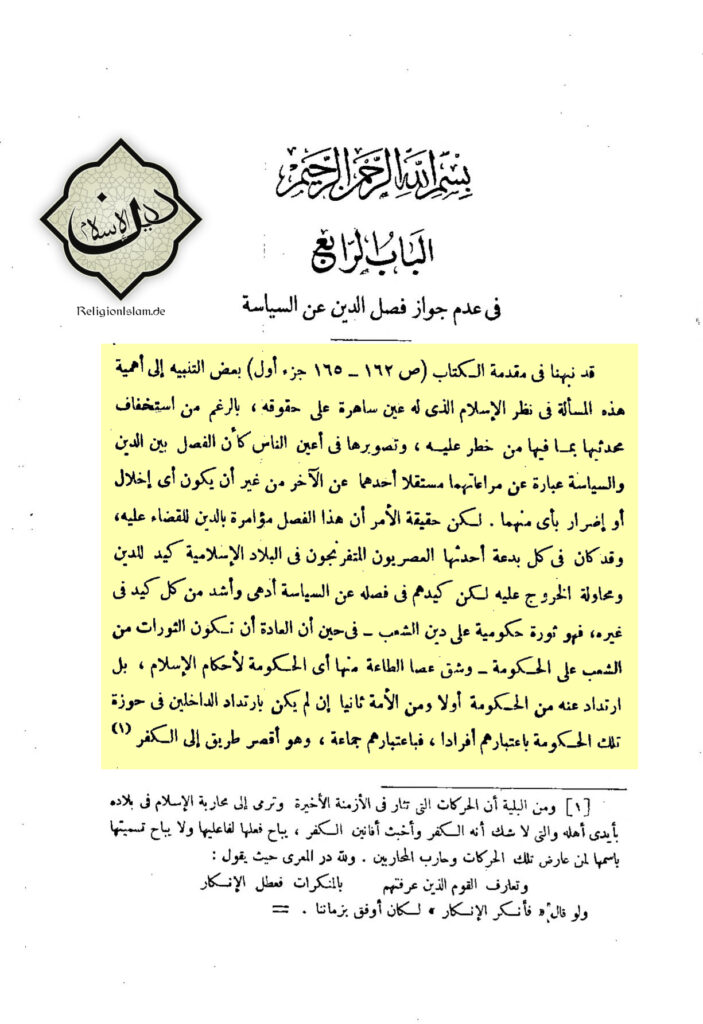 بسم الله الرحمن الرحيم
دين الإسلام
الباب الرابع
ReligionIslam.de
فى عدم جواز فصل الدين عن السياسة
قد نبهنا فى مقدمة الكتاب (ص ١٦٢ – ١٦٥ جزء أول) بعض التنبيه إلى أهمية
هذه المسألة فى نظر الإسلام الذى له عين ساهرة على حقوقه ، بالرغم من استخفاف
محدثيها بما فيها من خطر عليه ، وتصويرها فى أعين الناس كأن الفصل بين الدين
والسياسة عبارة عن مراعاتهما مستقلا أحدهما عن الآخر من غير أن يكون أى إخلال
أو إضرار بأى منهما . لكن حقيقة الأمر أن هذا الفصل مؤامرة بالدين للقضاء عليه،
وقد كان فى كل بدعة أحدثها المصريون المتفرنجون فى البلاد الإسلامية كيد للدين
ومحاولة الخروج عليه لكن كيدهم فى فصله عن السياسة أدهى وأشد من كل كيد فى
غيره، فهو ثورة حكومية على دين الشعب – فى حين أن العادة أن تكون الثورات من
الشعب على الحكومة – وشق عصا الطاعة منها أى الحكومة لأحكام الإسلام ، بل
ارتداد عنه من الحكومة أولا ومن الأمة ثانيا إن لم يكن بارتداد الداخلين فى حوزة
تلك الحكومة باعتبارهم أفرادا ، فباعتبارهم جماعة ، وهو أقصر طريق إلى الكفر (١)
[١] ومن البلية أن الحركات التى تثار فى الأزمنة الأخيرة وترمى إلى محاربة الإسلام فى بلاده
بأيدى أهله والتى لا شك أنه الكفر وأخبث أفانين الكفر ، يباح فعلها لفاعليها ولا يباح تسميتها
باسمها لمن عارض تلك الحركات وحارب المحاربين . ولله در المعرى حيث يقول :
وتعارف القوم الذين عرفتهم بالمنكرات فعطل الإنكار
ولو قال « فأنكر الإنكار » لكان أوفق بزماننا . =